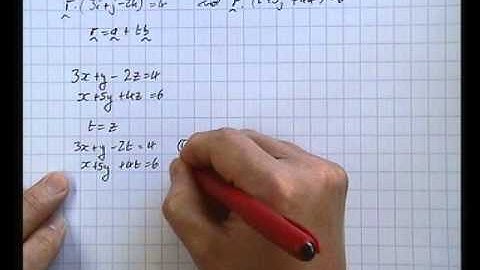 r.(3i+j-2k)=4 and r.(i+5j+4k)=6
r=a+tb
3x+y-2z=4
x+5y+4z=6
t=z
3x+y-2t=4
x+5y+4t=6